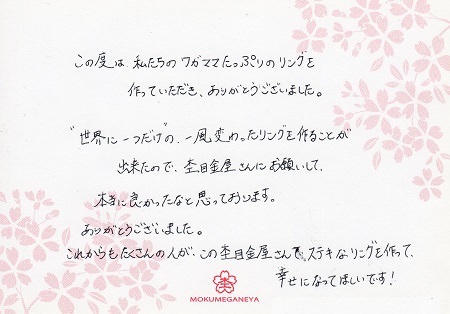 この度は、私たちのワガママたっぷりのリングを
作っていただき、ありがとうございました。
"世界に一つだけ"の、一風変わったリングを作ることが
出来たので、杢目金屋さんにお願いして、
本当に良かったなと思っております。
ありがとうございました。
これからもたくさんの人が、この杢目金屋さんで、ステキなリングを作って、
幸せになってほしいです!
杢
MOKUMEGANEYA